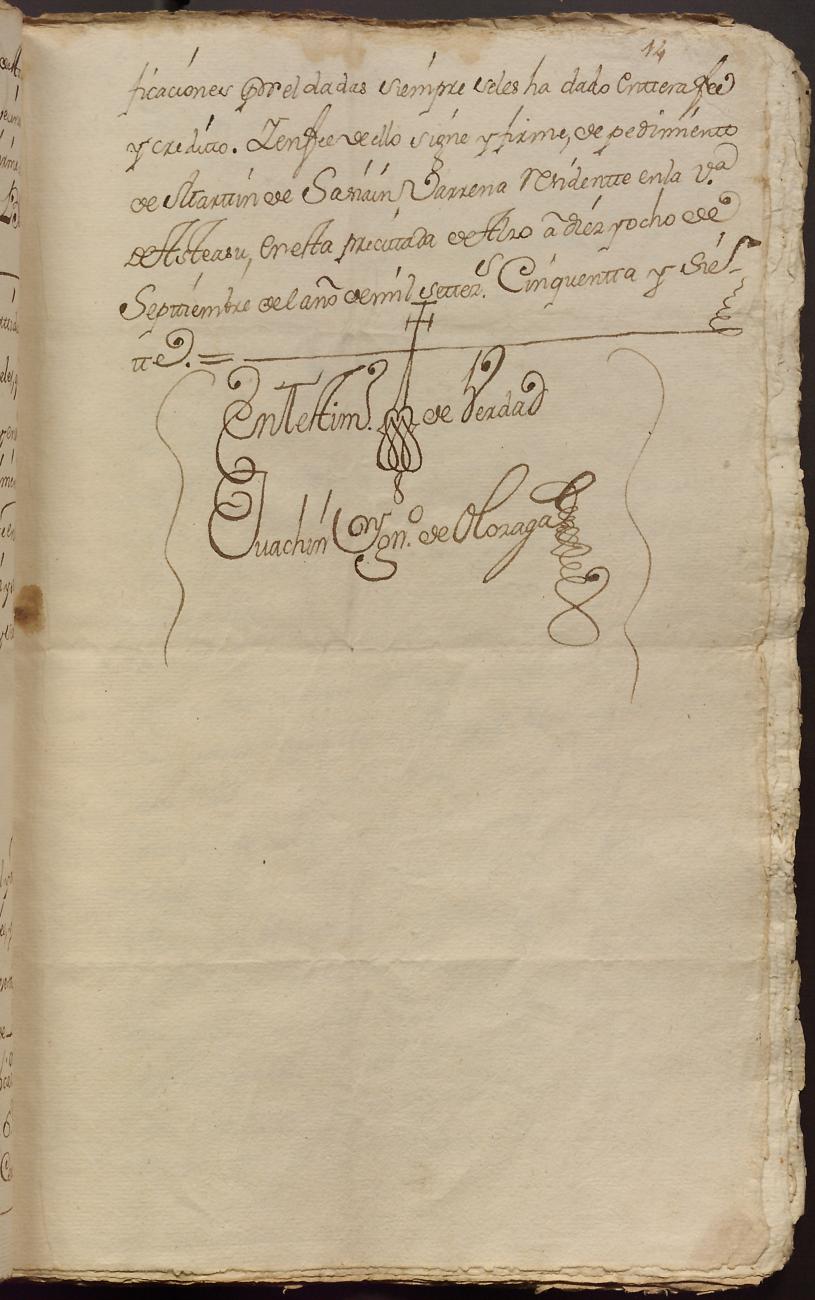 14
ficaciones por el dadas siempre seles ha dado enttera fee
y creditto. Y en fee de ello signe y firme, de pedimientto
de Marttin de Sarriain Varrena rresidentte en la v.ª
de Asteasu, en esta precittada de Alzo â diéz y ocho de
Septtiembre del año de mil setter.s Cinquentta y sies-
tte. =
En Testtim.º de Verdad
Juachin Ygn.º de Olozaga